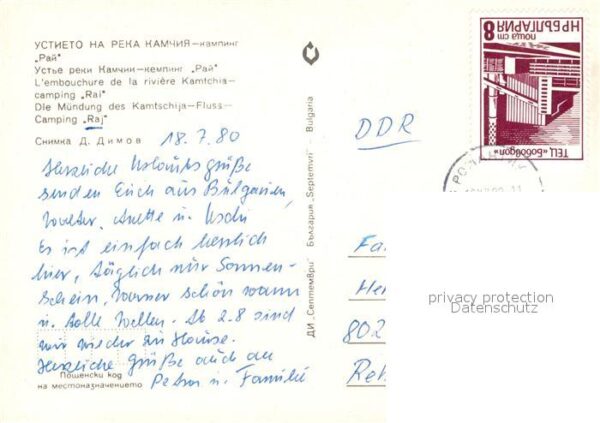 УСТИЕТО НА РЕКА КАМЧИЯ—кампинг
„Рай"
Устье реки Камчии—кемпинг „Рай"
L'embouchure de la rivière Kamtchia—
camping „Rai"
Die Mündung des Kamtschija—Fluss—
Camping „Raj"
Снимка Д. Димов
18.7.80
Herzliche Urlaubsgrüße
senden Euch aus Bulgarien
Walter, Anette u. Uschi
Es ist einfach herrlich
hier, täglich nur Sonnen-
schein, Wasser schön warm
u. tolle Wellen. Ab 2.8 sind
wir wieder zu Hause.
Herzliche Grüße auch an
Petra u. Familie
Пошенски код
на местоназначението
ДИ „Септември" България „Septemvri" Bulgaria
8
НР БЪЛГАРИЯ
поща ст
ТЕЦ „Бобовдол"
DDR
Fa
He
802
privacy protection
Datenschutz